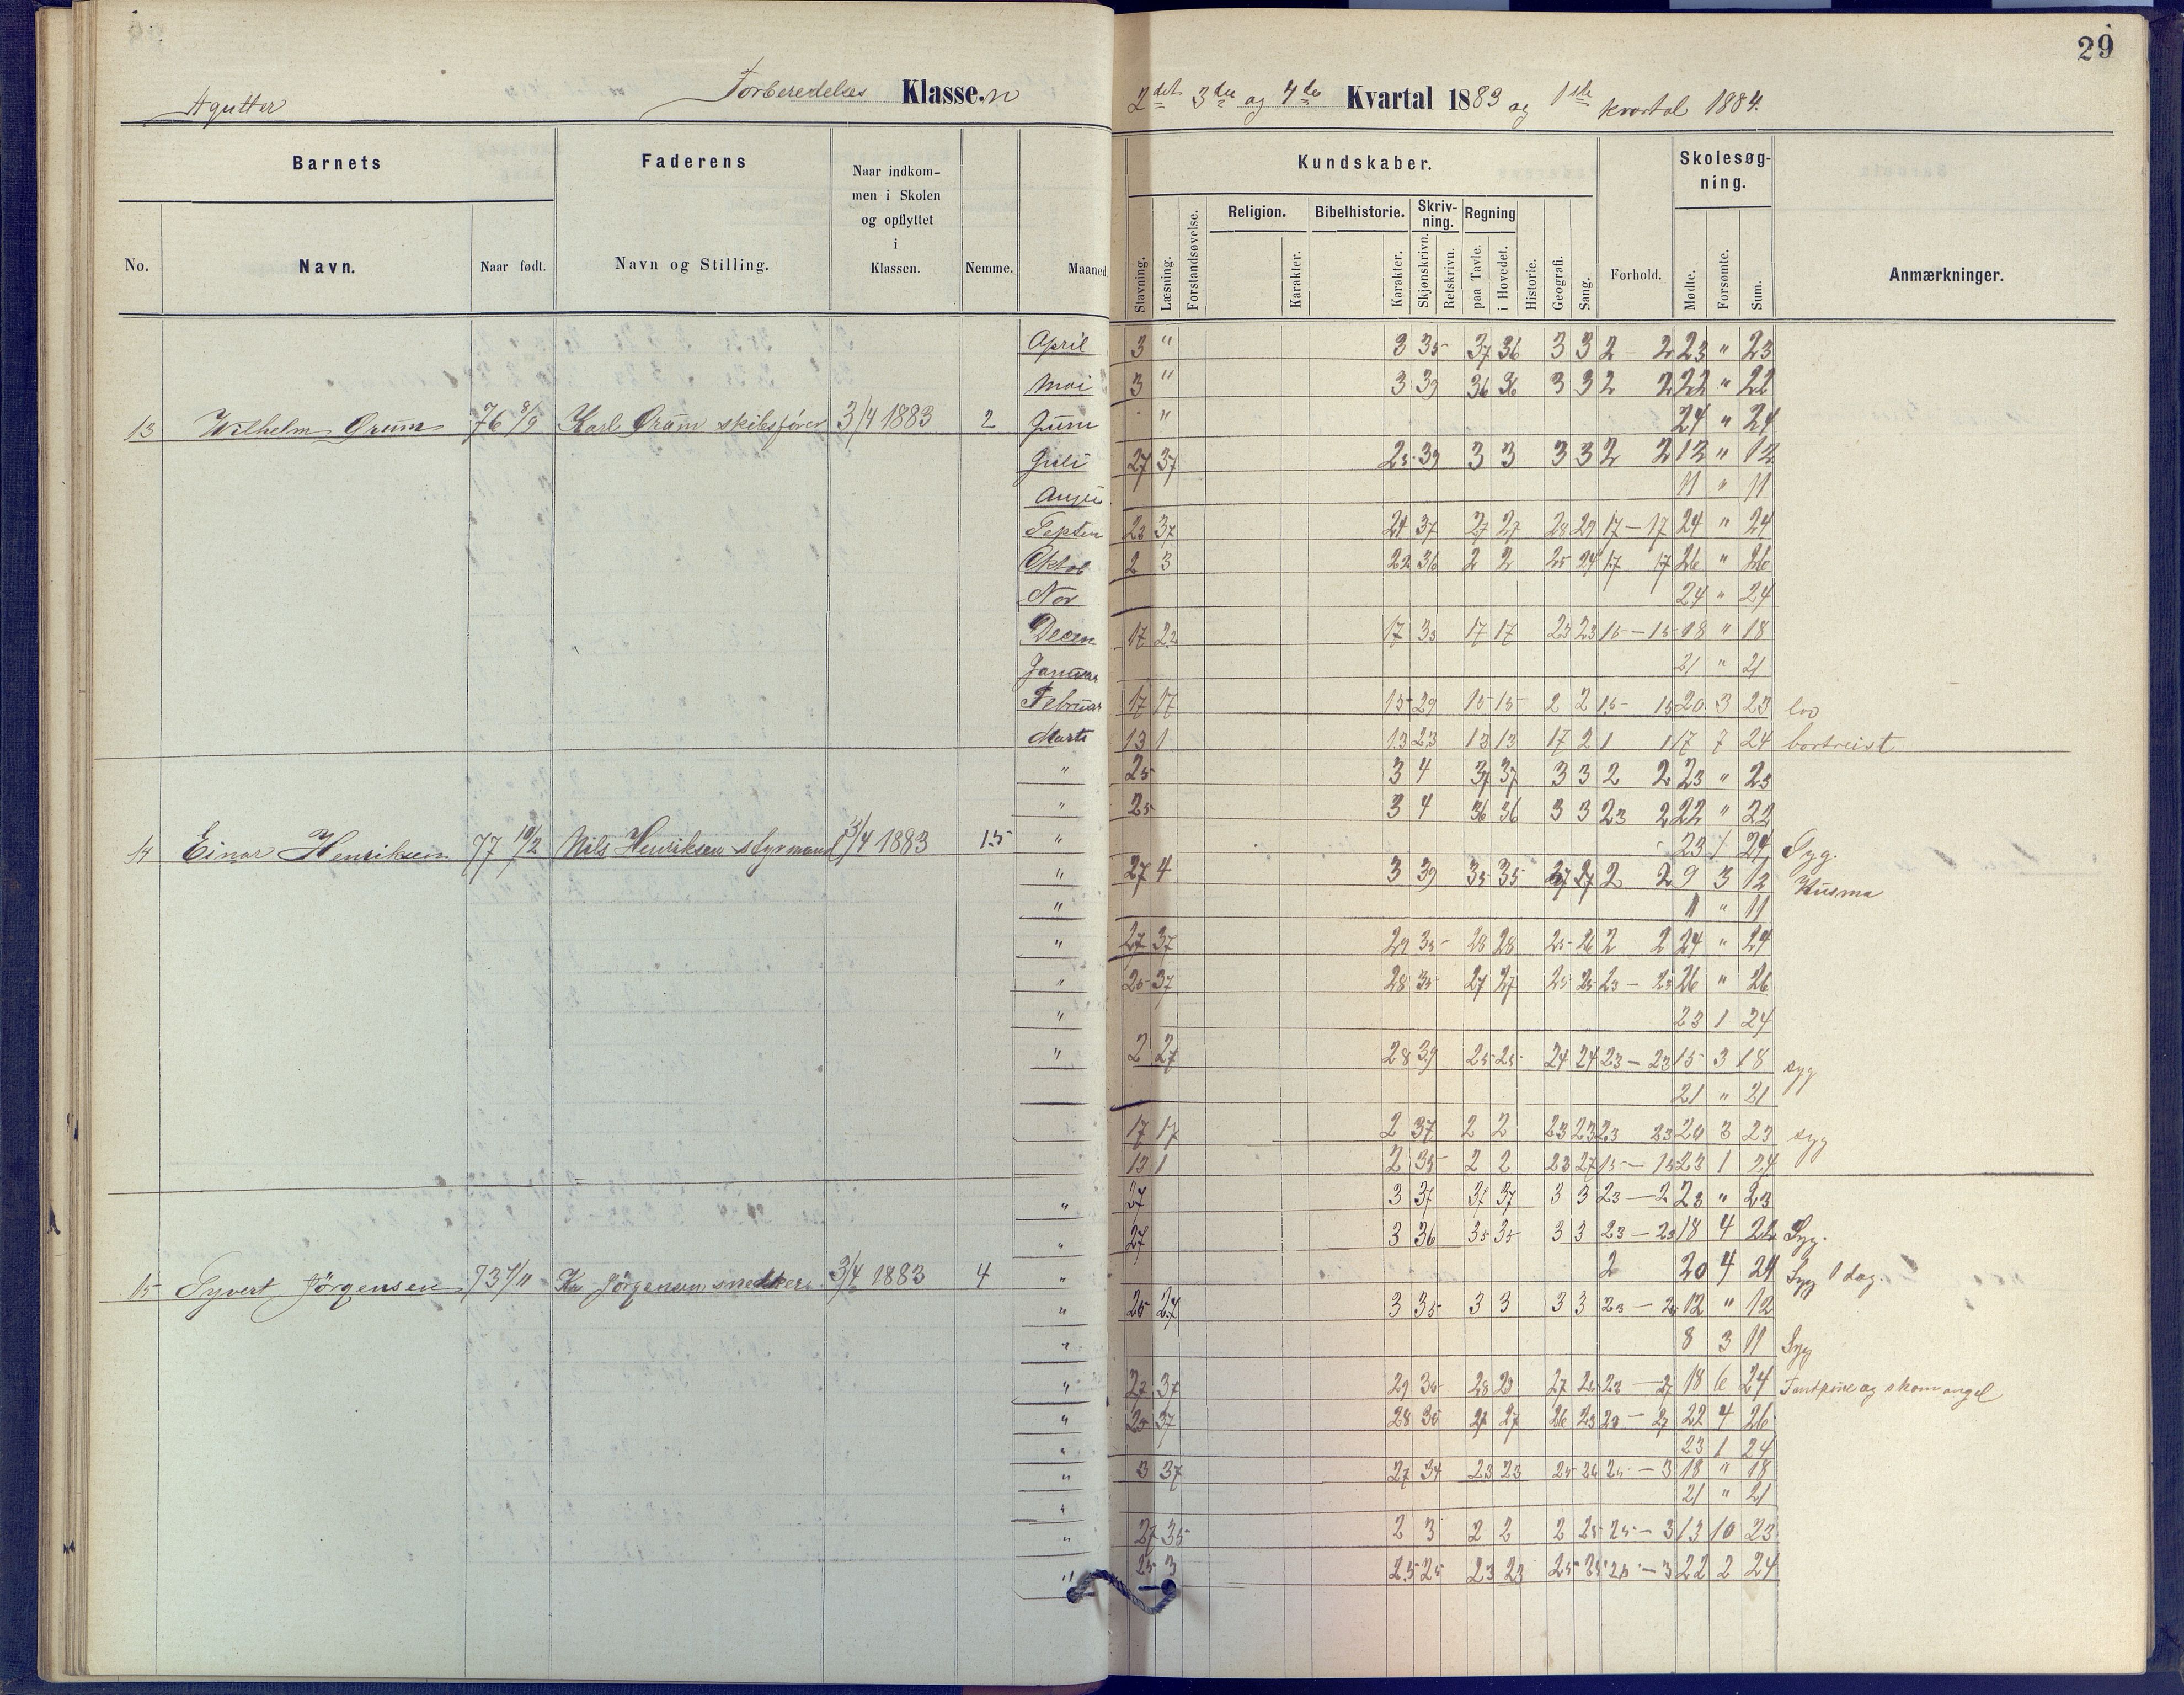 29
Forberedelses Klasse.n 2det 3die og 4de Kvartal 1883 og 1ste kvartal 1884.
Barnets Faderens Naar indkom-men i Skolen og opflyttet i Klassen. Nemme. Maaned.
No. Navn. Naar født. Navn og Stilling.
Kundskaber. Forhold. Skolesøg-ning. Anmærkninger.
Stavning. Læsning. Forstandsøvelse. Religion. Karakter. Bibelhistorie. Karakter. Skriv-ning. Skjønskrivn. Retskrivn. Regning paa Tavle. i Hovedet. Historie. Geografi. Sang. Mødte. Forsømte. Sum.
April 3 " 3 35 37 36 3 3 2 - 2 23 " 23
Mai 3 " 3 39 36 36 3 3 2 2 22 " 22
13 Wilhelm Gram 76 8/9 Karl Gram skibsfører 3/4 1883 2 Juni " 24 " 24
Juli 27 37 25 39 3 3 3 3 2 2 12 " 12
Augu 11 " 11
Septem 23 37 24 37 27 27 28 29 17 - 17 24 " 24
Oktob 2 3 22 36 2 2 25 24 17 17 26 " 26
Nov 24 " 24
Decem 17 22 17 33 17 17 23 23 15 - 15 18 " 18
Januar 21 " 21
Februar 17 17 15 29 15 15 2 2 15 - 15 20 3 23 lov
Marts 13 1 13 23 13 13 17 2 1 1 17 7 24 bortreist
" 25 3 4 37 37 3 3 2 2 23 " 23
" 25 3 4 36 36 3 3 23 2 22 " 22
14 Einar Henriksen 77 10/2 Nils Henriksen styrmand 3/4 1883 15 " 23 1 24 Syg.
" 27 4 3 39 35 35 27 27 2 2 9 3 12 Husma
" 11 " 11
" 27 37 29 35 28 28 25 26 2 2 24 " 24
" 25 37 28 35 27 27 25 25 23 - 23 26 " 26
" 23 1 24
" 2 27 28 39 25 25 24 24 23 - 23 15 3 18 syg
21 " 21
17 17 2 37 2 2 23 23 23 23 20 3 23 syg
13 1 2 35 2 2 23 27 15 - 15 23 1 24
" 27 3 37 37 37 3 3 23 - 2 23 " 23
" 27 3 36 35 35 3 3 23 - 23 18 4 22 Syg.
15 Syvert Jörgensen 73 7/11 Kr Jörgensen snekker 3/4 1883 4 " 2 20 4 24 Syg 1 dag.
" 25 27 3 35 3 3 3 3 23 - 2 12 " 12
" 8 3 11 Syg
" 27 37 29 35 28 23 27 26 23 - 27 18 6 24 Tandpine og skomangel
" 25 37 28 35 27 27 26 23 23 - 27 22 4 26
" 23 1 24
" 3 37 27 34 23 23 25 26 25 - 3 18 " 18
" 21 " 21
" 27 35 2 3 2 2 2 25 25 - 3 13 10 23
" 25 3 25 25 23 23 25 25 25 - 3 22 2 24